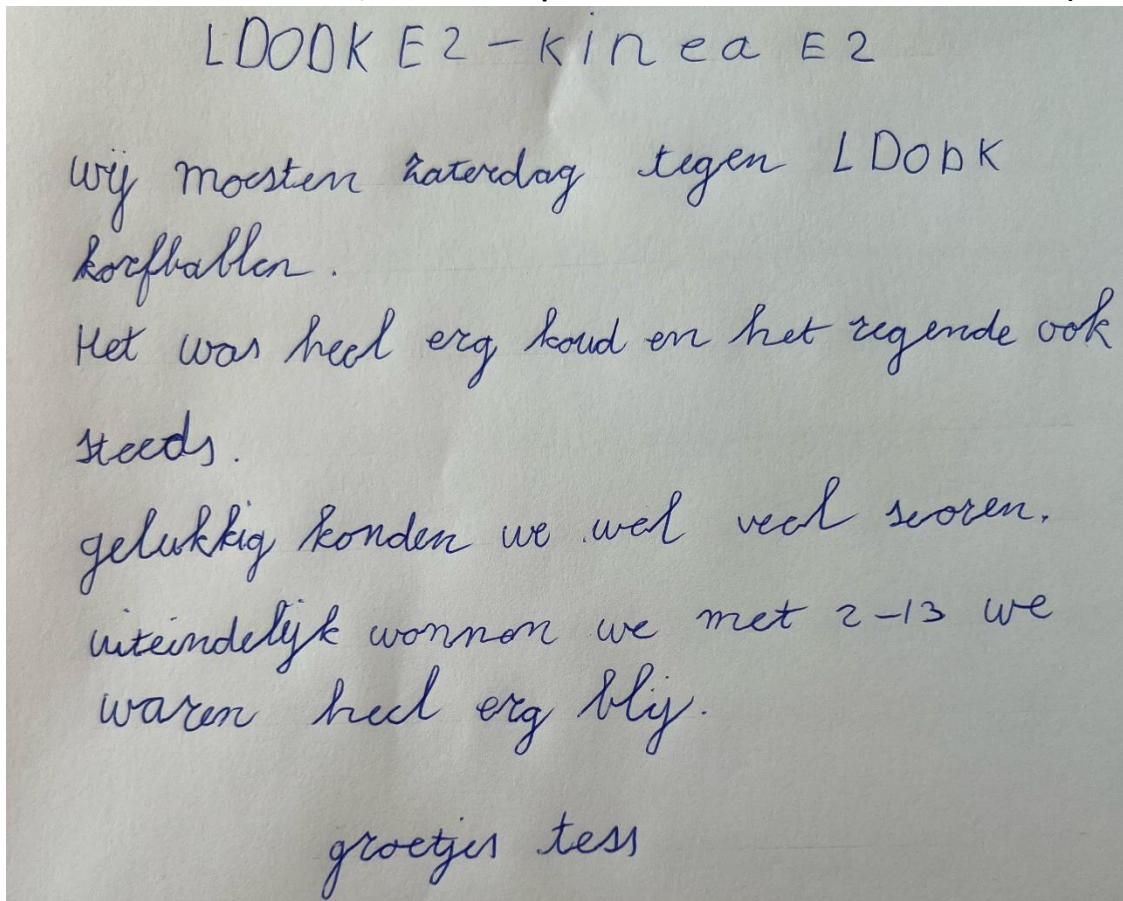 LDODK E2 - kinea E2
wij moesten zaterdag tegen LDODK
korfballen.
Het was heel erg koud en het regende ook
steeds.
gelukkig konden we wel veel scoren.
uiteindelijk wonnon we met 2-13 we
waren heel erg blij.
groetjes tess